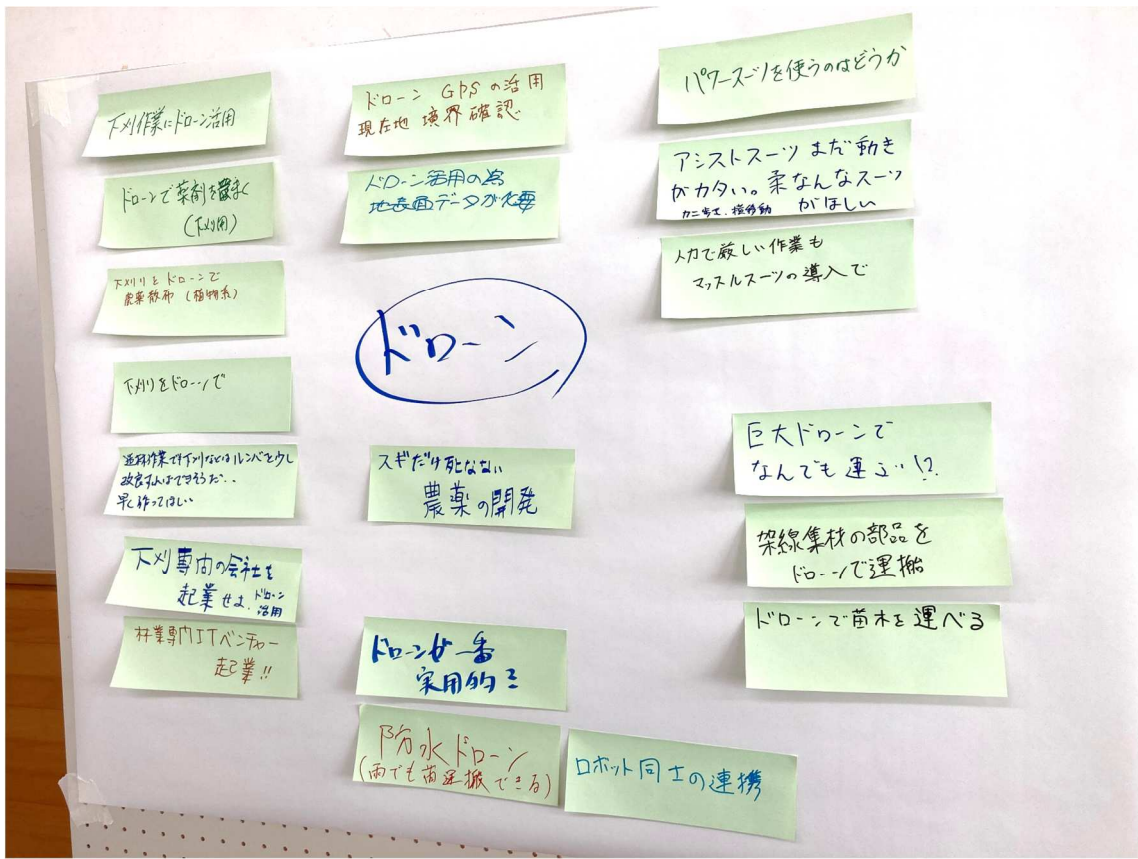 下刈作業にドローン活用
ドローンで薬剤を撒く
(下刈用)
下刈りをドローンで
農薬散布 (植物系)
下刈りをドローンで
造林作業で下刈などはルンバを少し
改良すればできそうだ..
早く作ってほしい
下刈専門の会社を
起業せよ、ドローン
活用
林業専門ITベンチャー
起業!!
ドローン GPSの活用
現在地 境界確認
ドローン活用の為
地表面データが必要
ドローン
スギだけ死なない
農薬の開発
ドローンが一番
実用的
防水ドローン
(雨でも苗運搬できる)
ロボット同士の連携
パワースーツを使うのはどうか
アシストスーツ まだ動き
がカタい。柔なんなスーツ
カニ歩き、横移動 がほしい
人力で厳しい作業も
マッスルスーツの導入で
巨大ドローンで
なんでも運ぶ!?
架線集材の部品を
ドローンで運搬
ドローンで苗木を運べる